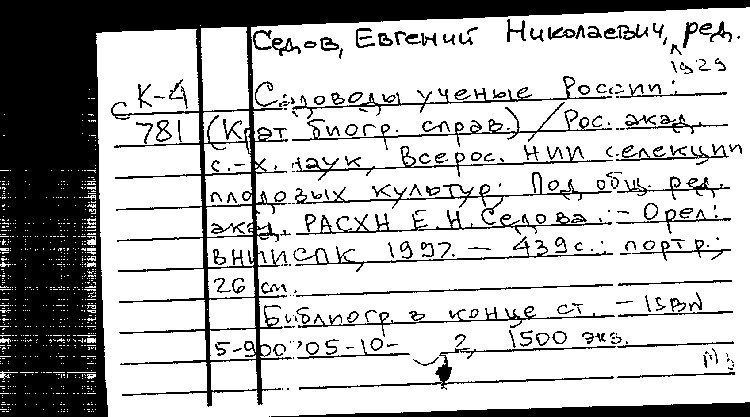 Седов, Евгений Николаевич, ред.
1929
с К-4 Садоводы ученые России:
781 (Крат. биогр. справ.) / Рос. акад.
с.-х. наук, Всерос. НИИ селекции
плодовых культур; Под общ. ред.
акад. РАСХН Е.Н. Седова. – Орел:
ВНИИСПК, 1997. – 439 с.: портр.;
26 см.
Библиогр. в конце ст. – ISBN
5-900705-10-2, 1500 экз.